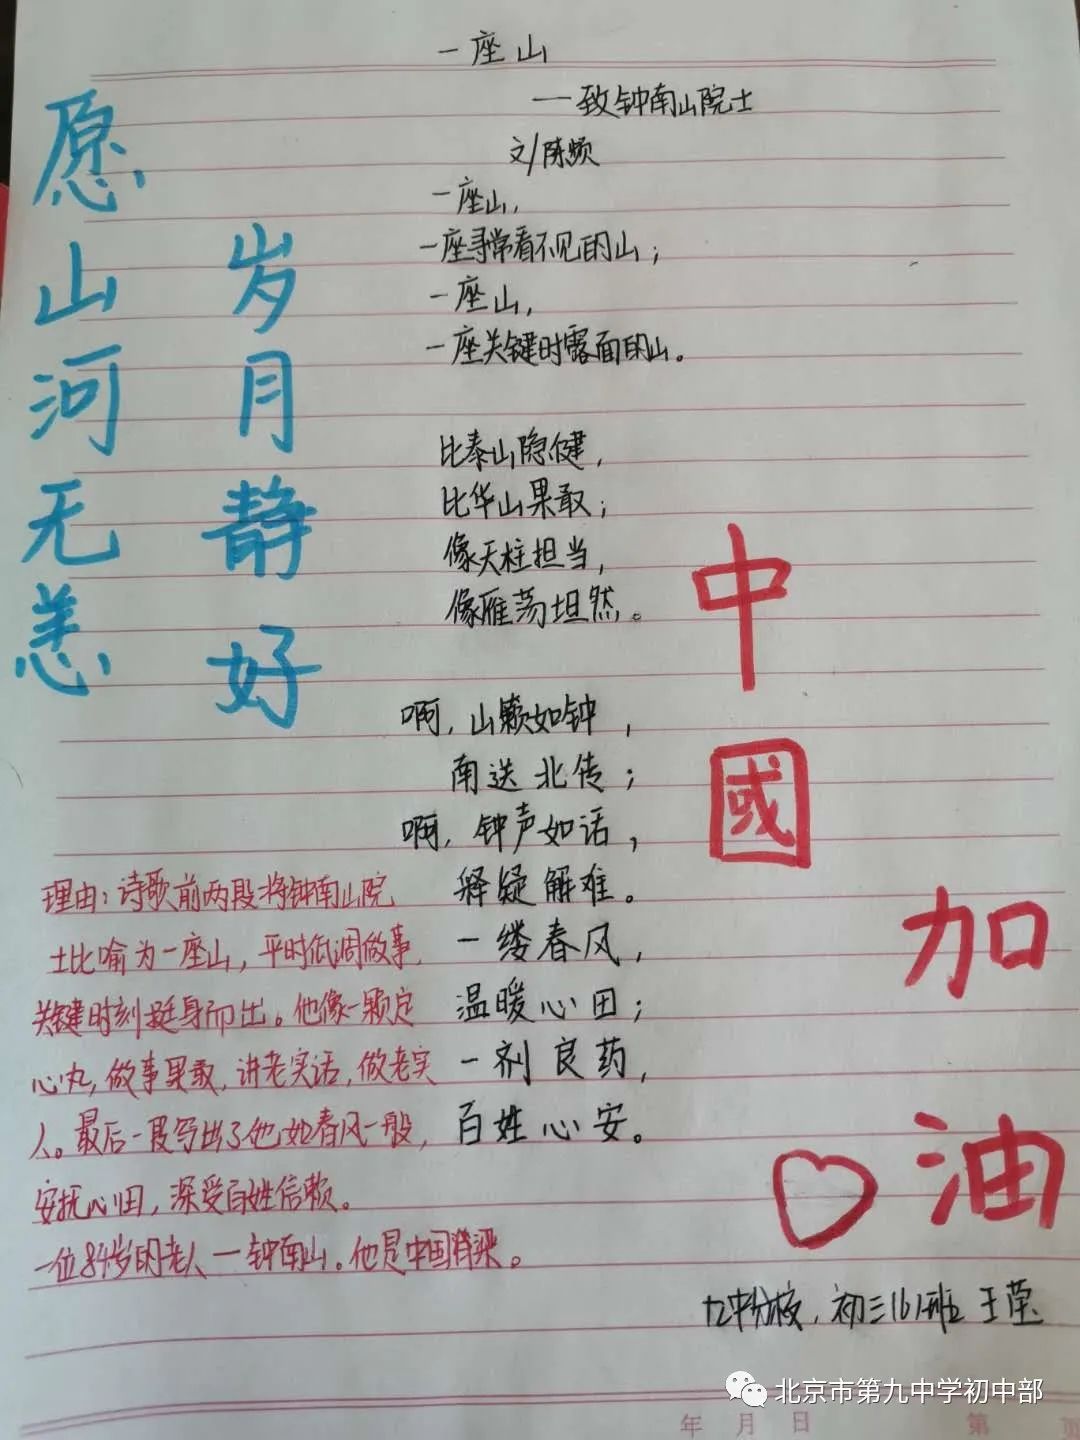 一座山
——致钟南山院士
文/陈频
一座山,
一座寻常看不见的山;
一座山,
一座关键时露面的山。
比泰山隐健,
比华山果敢;
像天柱担当,
像雁荡坦然。
啊,山籁如钟,
南送北传;
啊,钟声如话,
释疑解难。
一缕春风,
温暖心田;
一剂良药,
百姓心安。
愿山河无恙
岁月静好
中國加油
理由:诗歌前两段将钟南山院
士比喻为一座山,平时低调做事,
关键时刻挺身而出。他像一颗定
心丸,做事果敢,讲老实话,做老实
人。最后一段写出了他如春风一般,
安抚心田,深受百姓信赖。
一位84岁的老人—钟南山。他是中国脊梁。
九中分校,初三161班 王莹
北京市第九中学初中部
年 月 日
第 页